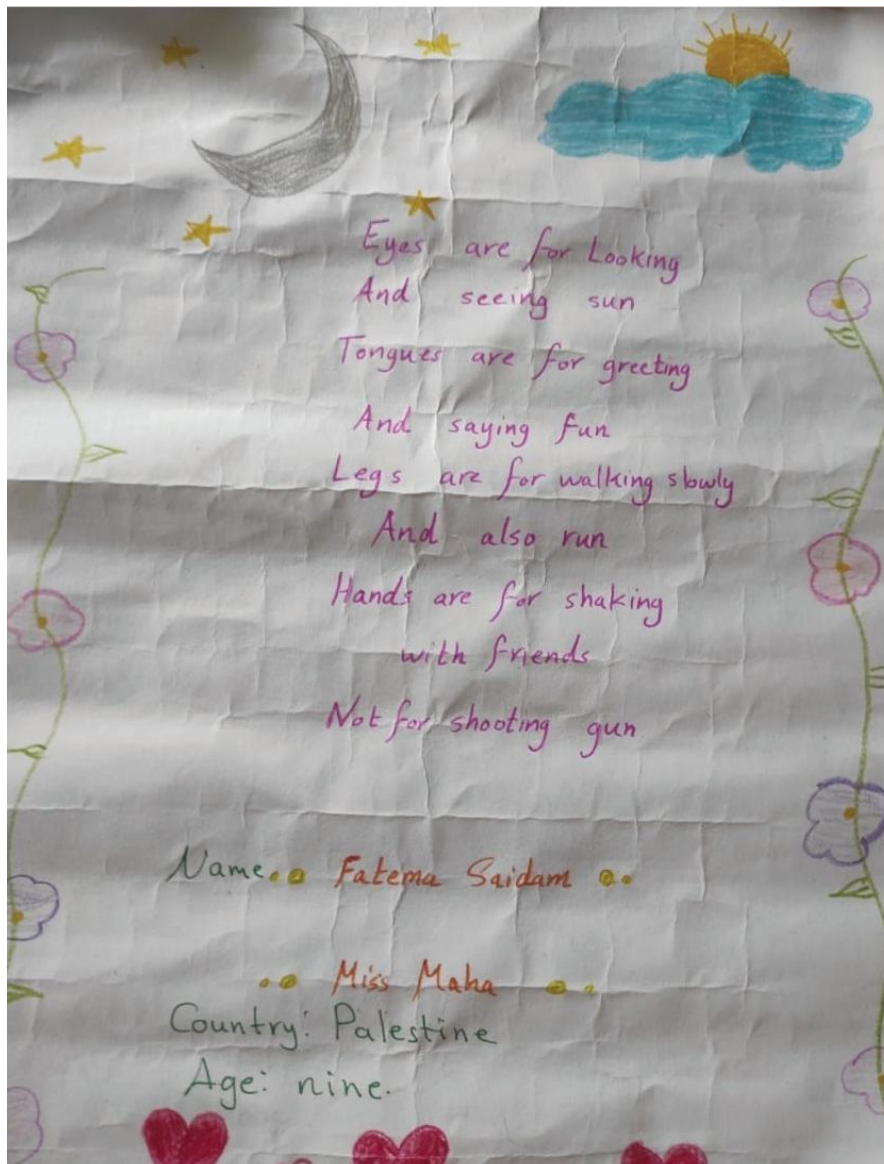 Eyes are for Looking
And seeing sun
Tongues are for greeting
And saying fun
Legs are for walking slowly
And also run
Hands are for shaking
with friends
Not for shooting gun
Name.. Fatema Saidam ..
.. Miss Maha ..
Country: Palestine
Age: nine.